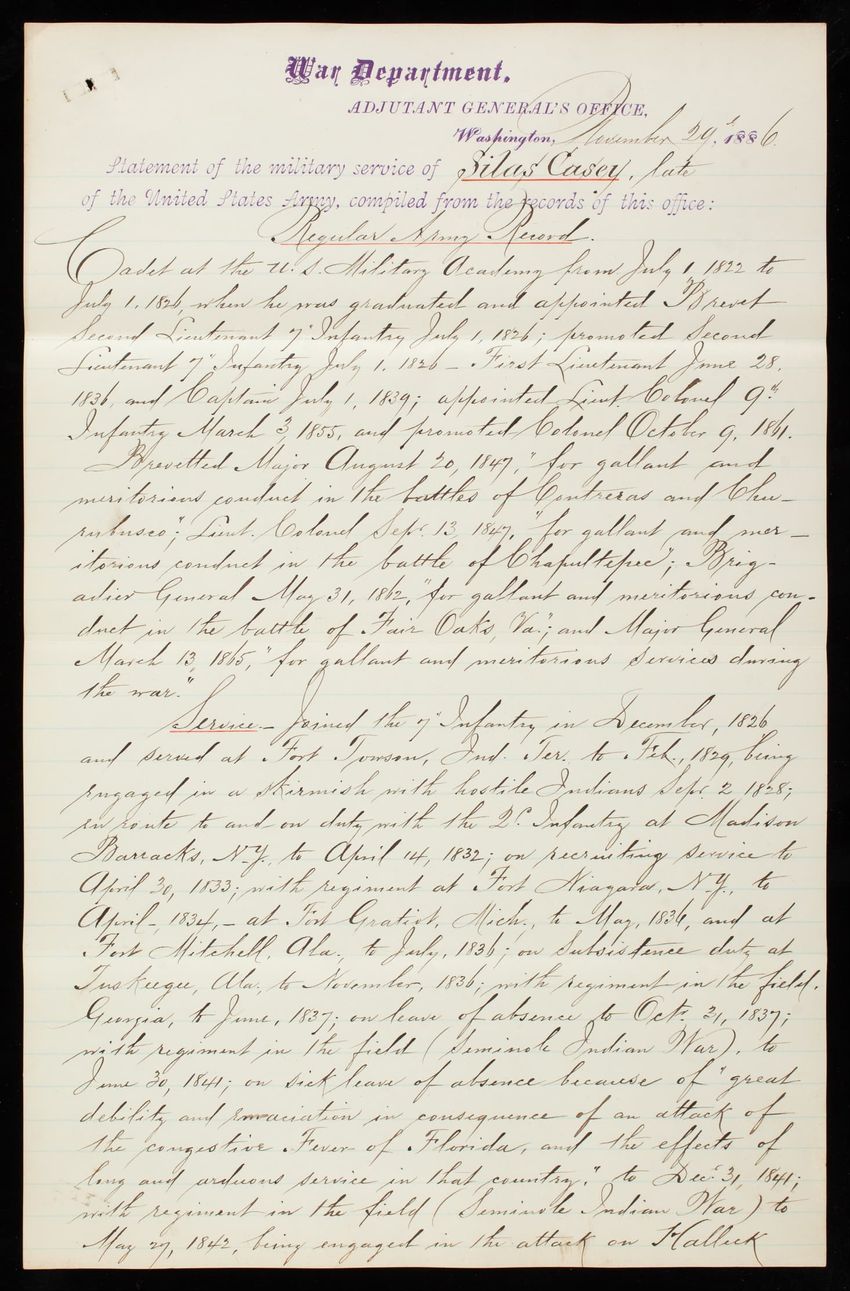 War Department,
ADJUTANT GENERAL'S OFFICE,
Washington, November 29", 1886.
Statement of the military service of Silas Casey, late
of the United States Army, compiled from the records of this office:
Regular Army Record.
Cadet at the U.S. Military Academy from July 1, 1822 to
July 1, 1826, when he was graduated and appointed Brevet
Second Lieutenant 7" Infantry July 1, 1826; promoted Second
Lieutenant 7" Infantry July 1, 1826 - First Lieutenant June 28,
1836, and Captain July 1, 1839; appointed Lieut. Colonel 9th
Infantry March 3, 1855, and promoted Colonel October 9, 1861.
Brevetted Major August 20, 1847, "for gallant and
meritorious conduct in the battles of Contreras and Chu-
rubusco"; Lieut. Colonel Sept. 13, 1847, "for gallant and mer-
itorious conduct in the battle of Chapultepec"; Brig-
adier General May 31, 1862, "for gallant and meritorious con-
duct in the battle of Fair Oaks, Va."; and Major General
March 13, 1865, "for gallant and meritorious services during
the war."
Service. - Joined the 7" Infantry in December, 1826
and served at Fort Towson, Ind. Ter. to Feb., 1829, being
engaged in a skirmish with hostile Indians Sept. 2 1828;
en route to and on duty with the 2d. Infantry at Madison
Barracks, N.Y., to April 14, 1832; on recruiting service to
April 30, 1833; with regiment at Fort Niagara, N.Y., to
April -, 1834, - at Fort Gratiot, Mich., to May, 1836, and at
Fort Mitchell, Ala., to July, 1836; on Subsistence duty at
Tuskeegee, Ala., to November, 1836; with regiment in the field,
Georgia, to June, 1837; on leave of absence to Oct. 31, 1837;
with regiment in the field (Seminole Indian War), to
June 30, 1841; on sick leave of absence because of "great
debility and emaciation in consequence of an attack of
the congestive Fever of Florida, and the effects of
long and arduous service in that country," to Dec. 31, 1841;
with regiment in the field (Seminole Indian War) to
May 27, 1842, being engaged in the attack on Halleck